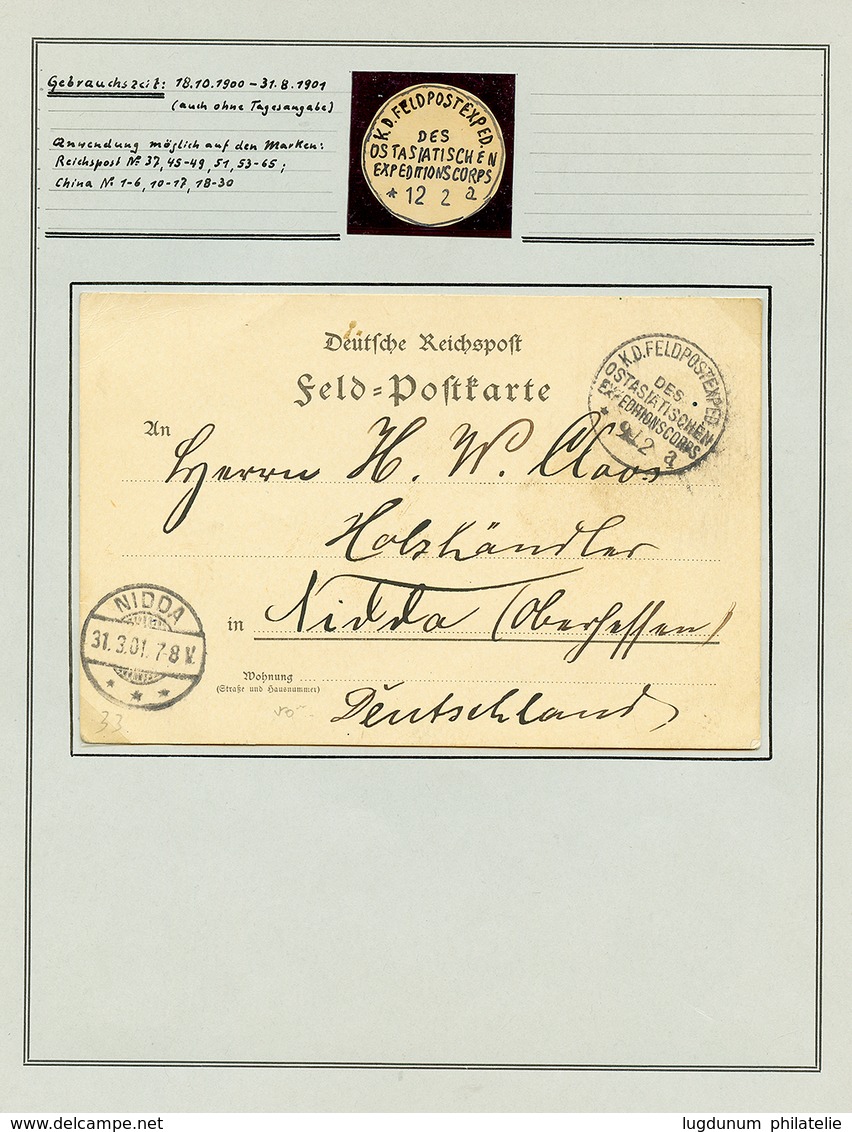 Gebrauchszeit: 18.10.1900 – 31.8.1901
(auch ohne Tagesangabe)
Anwendung möglich auf den Marken:
Reichspost № 37, 45-49, 51, 53-65;
China № 1-6, 10-17, 18-30
K.D. FELDPOSTEXPED.
DES
OSTASIATISCHEN
EXPEDITIONSCORPS
* 12 2 a
Deutsche Reichspost
Feld-Postkarte
K.D. FELDPOSTEXPED.
DES
OSTASIATISCHEN
EXPEDITIONSCORPS
* 9 12 a
An
Herrn H. W. Cloos
Holzhändler
in Nidda (Oberhessen)
Wohnung
(Straße und Hausnummer)
Deutschland
NIDDA
31.3.01. 7-8 V.
* * *
33
lugdunum philatelie